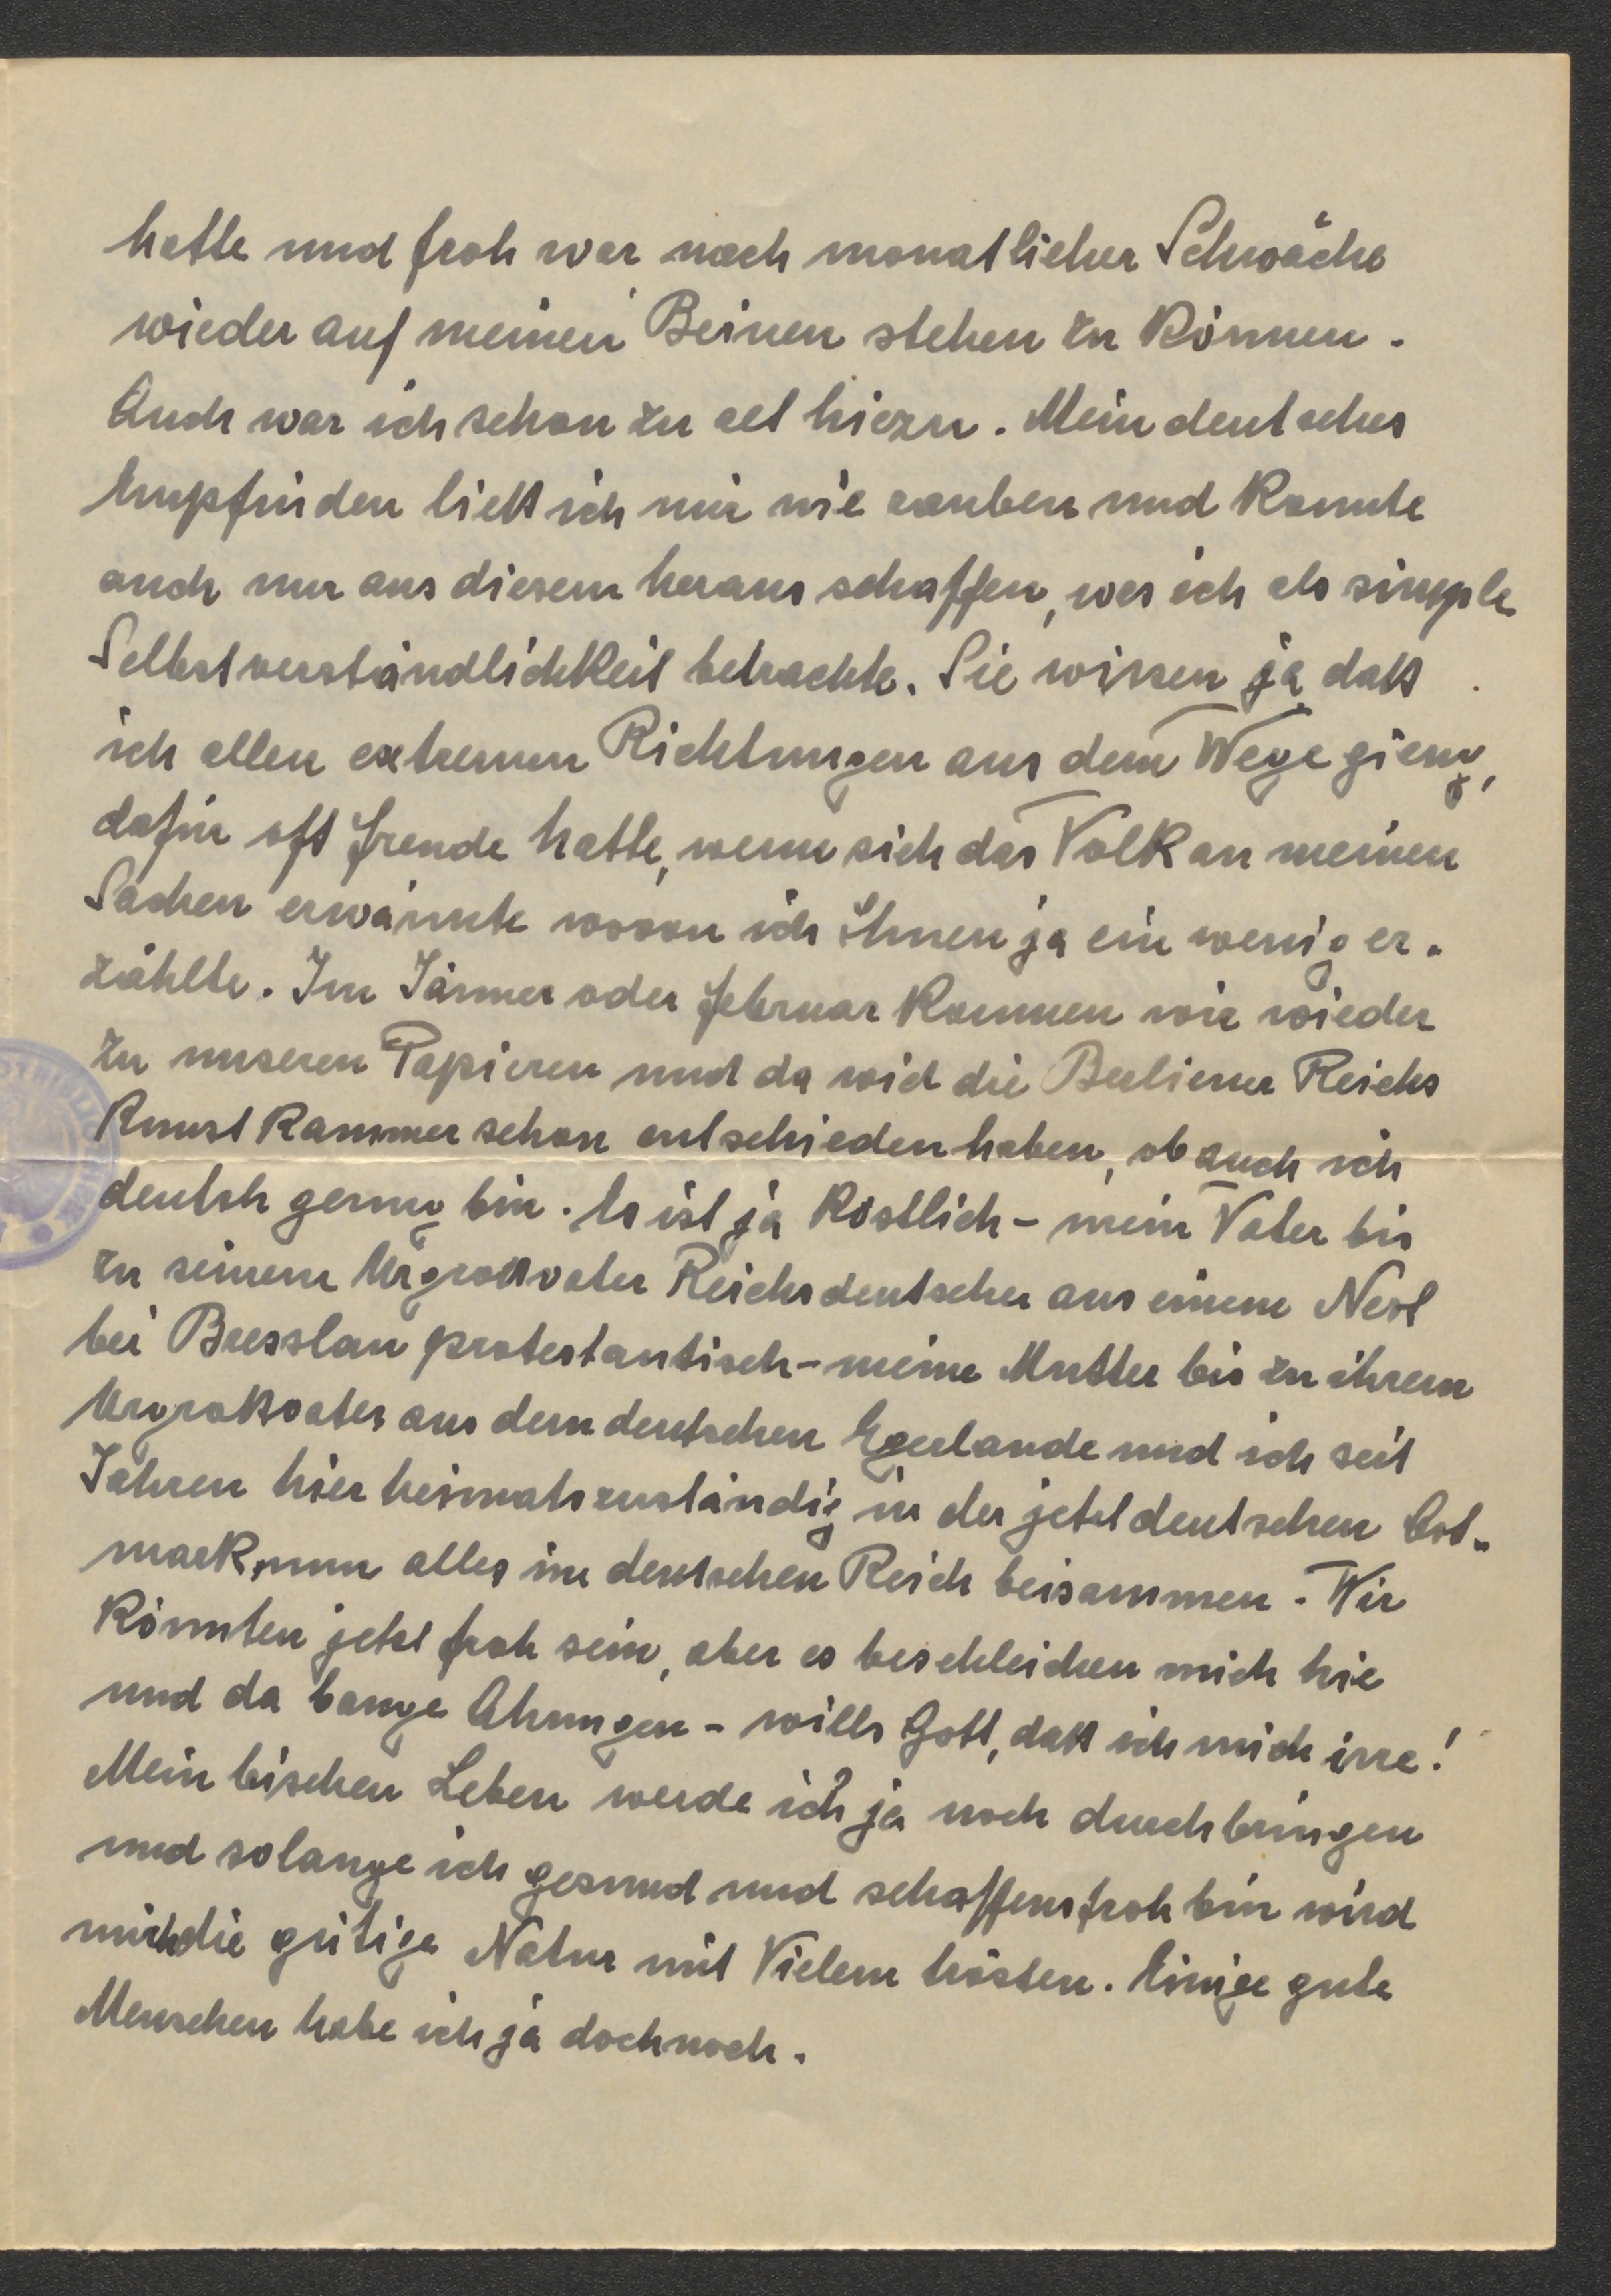 hatte und froh war nach monatlicher Schwäche
wieder auf meinen Beinen stehen zu können.
Auch war ich schon zu alt hiezu. Mein deutsches
Empfinden ließ ich mir nie rauben und konnte
auch nur aus diesem heraus schaffen, was ich als simple
Selbstverständlichkeit betrachte. Sie wissen ja daß
ich allen extremen Richtungen aus dem Wege gieng,
dafür oft Freude hatte, wenn sich das Volk an meinen
Sachen erwärmte wovon ich Ihnen ja ein wenig er-
zählte. Im Jänner oder Februar kommen wir wieder
zu unseren Papieren und da wid die Berliener Reichs
Kunst Kammer schon entschieden haben, ob auch ich
deutsh genug bin. Es ist ja köstlich - mein Vater bis
zu seinem Urgroßvater Reichsdeutscher aus einem Nest
bei Bresslau protestantisch - meine Mutter bis zu ihrem
Urgroßvater aus dem deutschen Egerlande und ich seit
Jahren hier heimatszuständig in der jetzt deutschen Ost-
mark, nun alles im deutschen Reich beisammen. Wir
könnten jetzt froh sein, aber es beschleichen mich hie
und da bange Ahnungen - wills Gott, daß ich mich irre!
Mein bischen Leben werde ich ja noch durchbringen
und solange ich gesund und schaffensfroh bin wird
mich die gütige Natur mit Vielem trösten. Einige gute
Menschen habe ich ja doch noch.